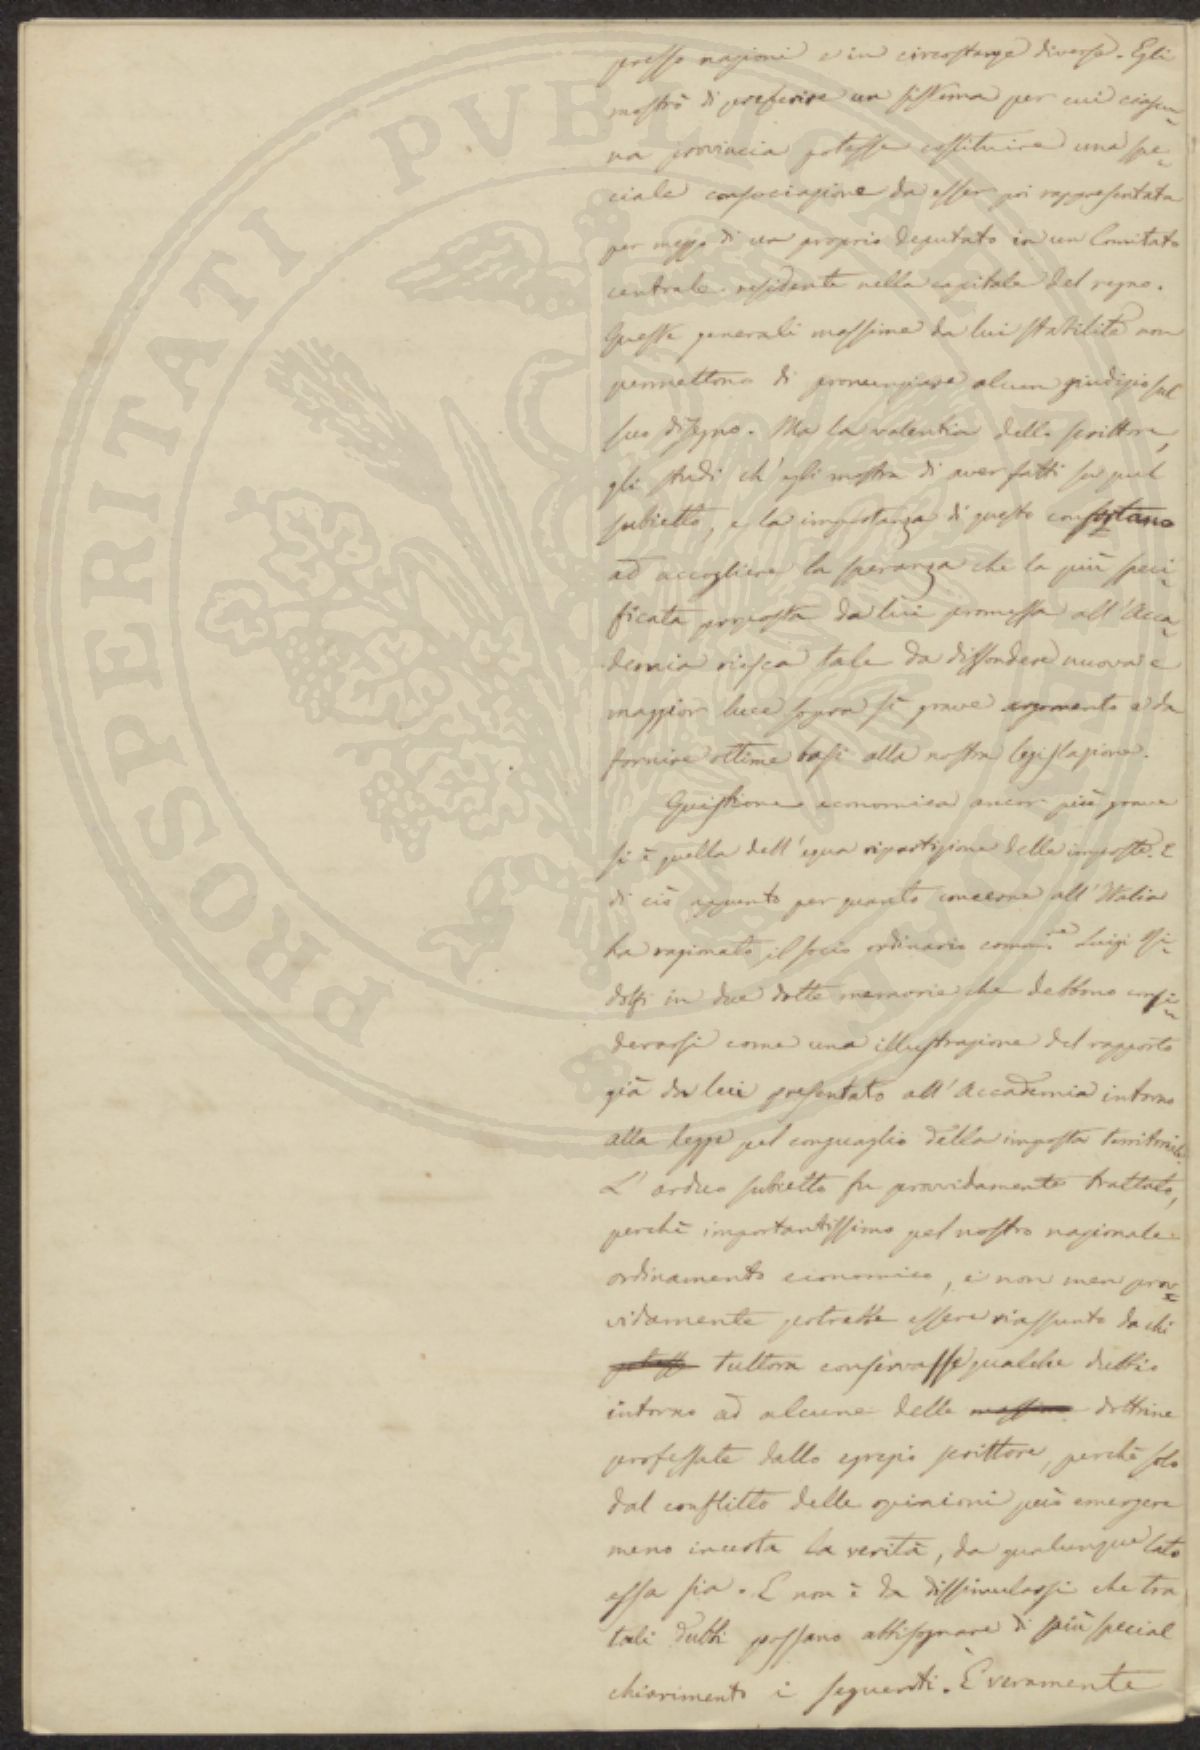 presso nazioni e in circostanze diverse. Egli
mostrò di preferire un sistema per cui ciascu=
na provincia potesse costituire una spe=
ciale consociazione da esser poi rappresentata
per mezzo di un proprio deputato in un Comitato
centrale residente nella capitale del regno.
Queste generali massime da lui stabilite non
permettono di pronunziare alcun giudizio sul
suo disegno. Ma la valentia dello scrittore,
gli studi ch'egli mostra di aver fatti su quel
subietto, e la importanza di questo confortano
ad accogliere la speranza che la più speci=
ficata proposta da lui promessa all'Acca=
demia riesca tale da diffondere nuova e
maggior luce sopra sì grave argomento e da
fornire ottime basi alla nostra legislazione.
Quistione economica ancor più grave
si è quella dell'equa ripartizione delle imposte. E
di ciò appunto per quanto concerne all'Italia
ha ragionato il socio ordinario comm.re Luigi
in due dotte memorie che debbono consi=
derarsi come una illustrazione del rapporto
già da lui presentato all'Accademia intorno
alla legge pel conguaglio della imposta territoriale.
L'arduo subietto fu provvidamente trattato,
perchè importantissimo pel nostro nazionale
ordinamento economico, e non men prov=
vidamente potrebbe essere riassunto da chi
tuttora conservasse qualche dubbio
intorno ad alcune delle massime dottrine
professate dallo egregio scrittore, perchè solo
dal conflitto delle opinioni può emergere
meno incerta la verità, da qualunque lato
essa sia. E non è da dissimularsi che tra
tali dubbi possano abbisognare di più special
chiarimento i seguenti. È veramente
PROSPERITATI PUBLICAE AUGENDAE